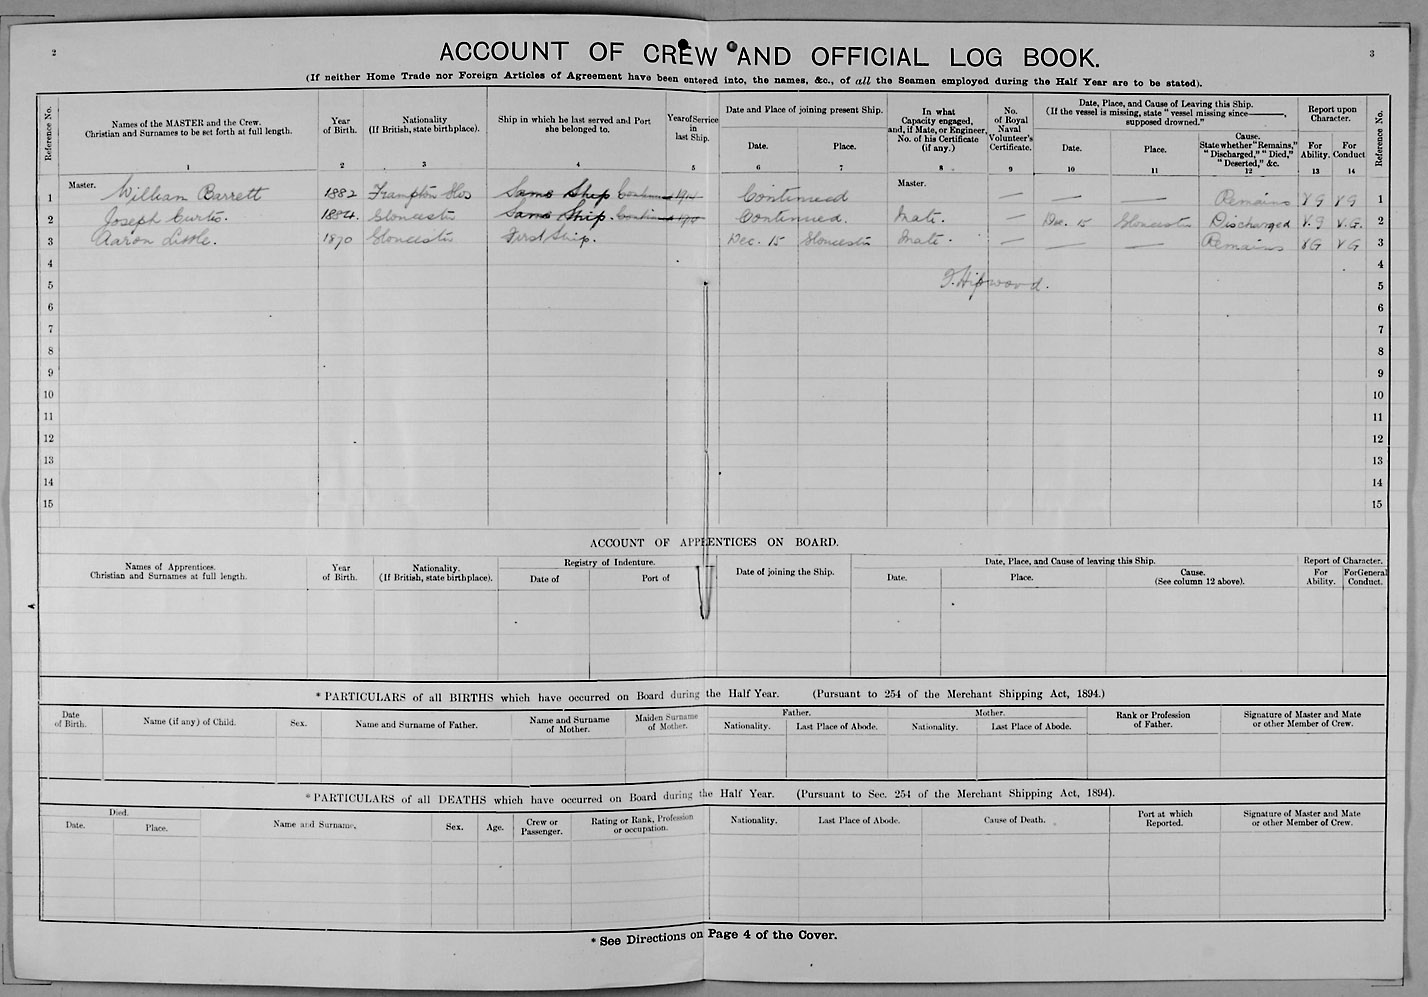 2
ACCOUNT OF CREW AND OFFICIAL LOG BOOK.
3
(If neither Home Trade nor Foreign Articles of Agreement have been entered into, the names, &c., of all the Seamen employed during the Half Year are to be stated).
Reference No.
Names of the MASTER and the Crew. Christian and Surnames to be set forth at full length.
Year of Birth.
Nationality (If British, state birthplace).
Ship in which he last served and Port she belonged to.
Year of Service in last Ship.
Date and Place of joining present Ship.
Date.
Place.
In what Capacity engaged, and, if Mate, or Engineer, No. of his Certificate (if any.)
No. of Royal Naval Volunteer's Certificate.
Date, Place, and Cause of Leaving this Ship. (If the vessel is missing, state "vessel missing since———, supposed drowned."
Date.
Place.
Cause. State whether "Remains," "Discharged," "Died," "Deserted," &c.
Report upon Character.
For Ability.
For Conduct
Reference No.
1 2 3 4 5 6 7 8 9 10 11 12 13 14
1 Master. William Barrett 1882 Frampton Glos Same Ship Continued Master. — — — Remains V G V G 1
2 Joseph Curtis. 1884. Gloucester Same Ship. Continued. Mate. — Dec. 15 Gloucester Discharged V. G V. G. 2
3 Aaron Little. 1870 Gloucester First Ship. Dec. 15 Gloucester Mate. — — — Remains V G V G 3
4 4
5 T. Hipwood. 5
6 6
7 7
8 8
9 9
10 10
11 11
12 12
13 13
14 14
15 15
ACCOUNT OF APPRENTICES ON BOARD.
Names of Apprentices. Christian and Surnames at full length.
Year of Birth.
Nationality. (If British, state birthplace).
Registry of Indenture.
Date of
Port of
Date of joining the Ship.
Date, Place, and Cause of leaving this Ship.
Date.
Place.
Cause. (See column 12 above).
Report of Character.
For Ability.
For General Conduct.
A
* PARTICULARS of all BIRTHS which have occurred on Board during the Half Year. (Pursuant to 254 of the Merchant Shipping Act, 1894.)
Date of Birth.
Name (if any) of Child.
Sex.
Name and Surname of Father.
Name and Surname of Mother.
Maiden Surname of Mother.
Father.
Nationality.
Last Place of Abode.
Mother.
Nationality.
Last Place of Abode.
Rank or Profession of Father.
Signature of Master and Mate or other Member of Crew.
* PARTICULARS of all DEATHS which have occurred on Board during the Half Year. (Pursuant to Sec. 254 of the Merchant Shipping Act, 1894).
Died.
Date.
Place.
Name and Surname.
Sex.
Age.
Crew or Passenger.
Rating or Rank, Profession or occupation.
Nationality.
Last Place of Abode.
Cause of Death.
Port at which Reported.
Signature of Master and Mate or other Member of Crew.
* See Directions on Page 4 of the Cover.